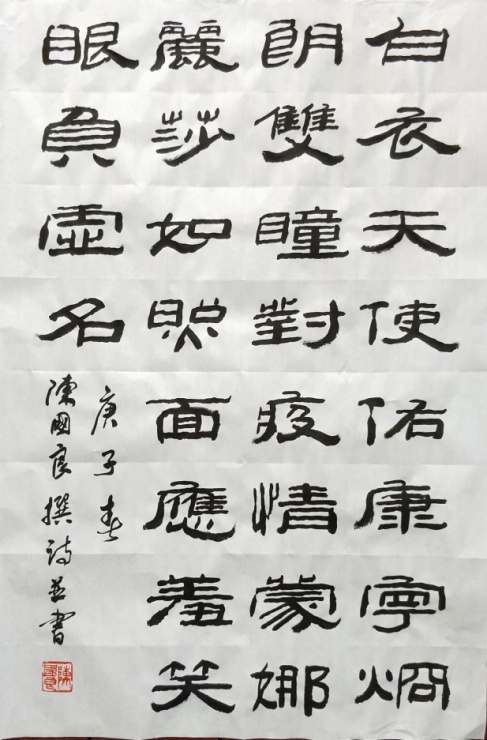 白衣天使佑康寧炯
朗雙瞳對疫情蒙娜
麗莎如照面應羞笑
眼負虛名
庚子春
陳國良撰詩並書